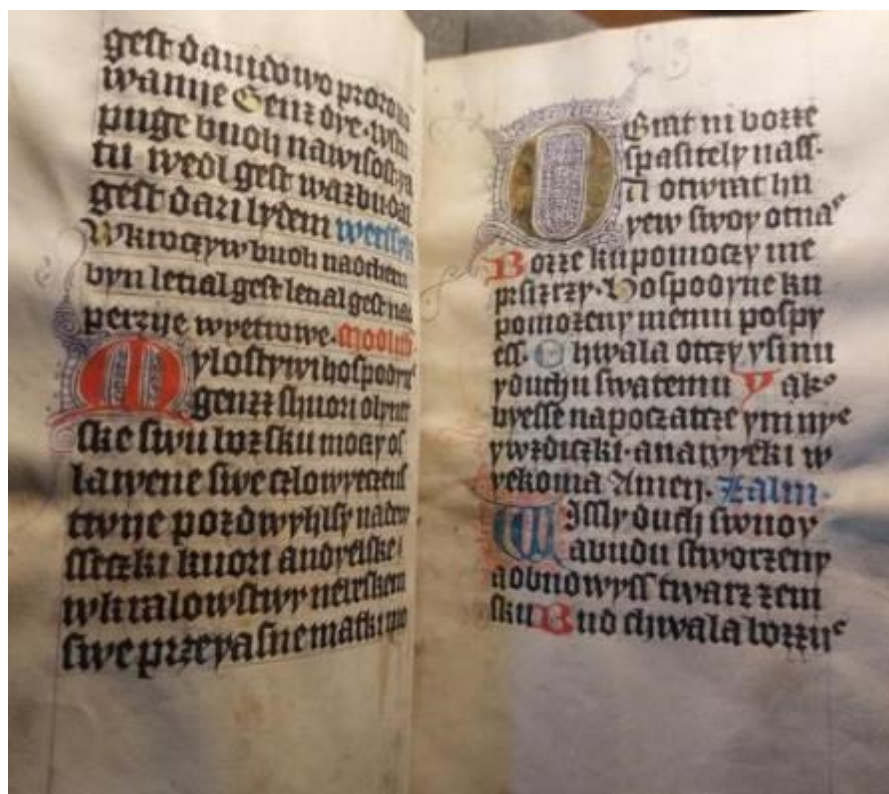 gest dauidowo prorono
wanije Genz dye wstu
puge buoh nawisost ya
tu wedl gest wazbudal
gest dari lydem werssyk
Wkroczyw buoh nadchem
byn letial gest letial gest nad
perzije wyetrowe. Modlith
Mylostywi hospodyn
genzz shuori olywet
ske swu bozsku moczy os
lawene swe czlowyeczens
twije pozdwyhlsy nadew
sseczki kuori andyelske
wkralowstwy nebeskem
swe przeyasne matki po
Obrat ni bozze
spasitely nass.
Ti otwrat hn
yew swoy otna
Bozze kupomoczy me
prsizrzy. Hospodyne ku
pomozeny memu pospy
ess. Chwala otczy ysinu
yduchu swatemu Yak
byesse napoczatcze ymny
ywzdiczki. anawyeki w
yekoma Amen. Zalm.
Wissly duch swuoy
abudu stworzeny
aobnowyss twarz zem
sku Bud chwala bozzy